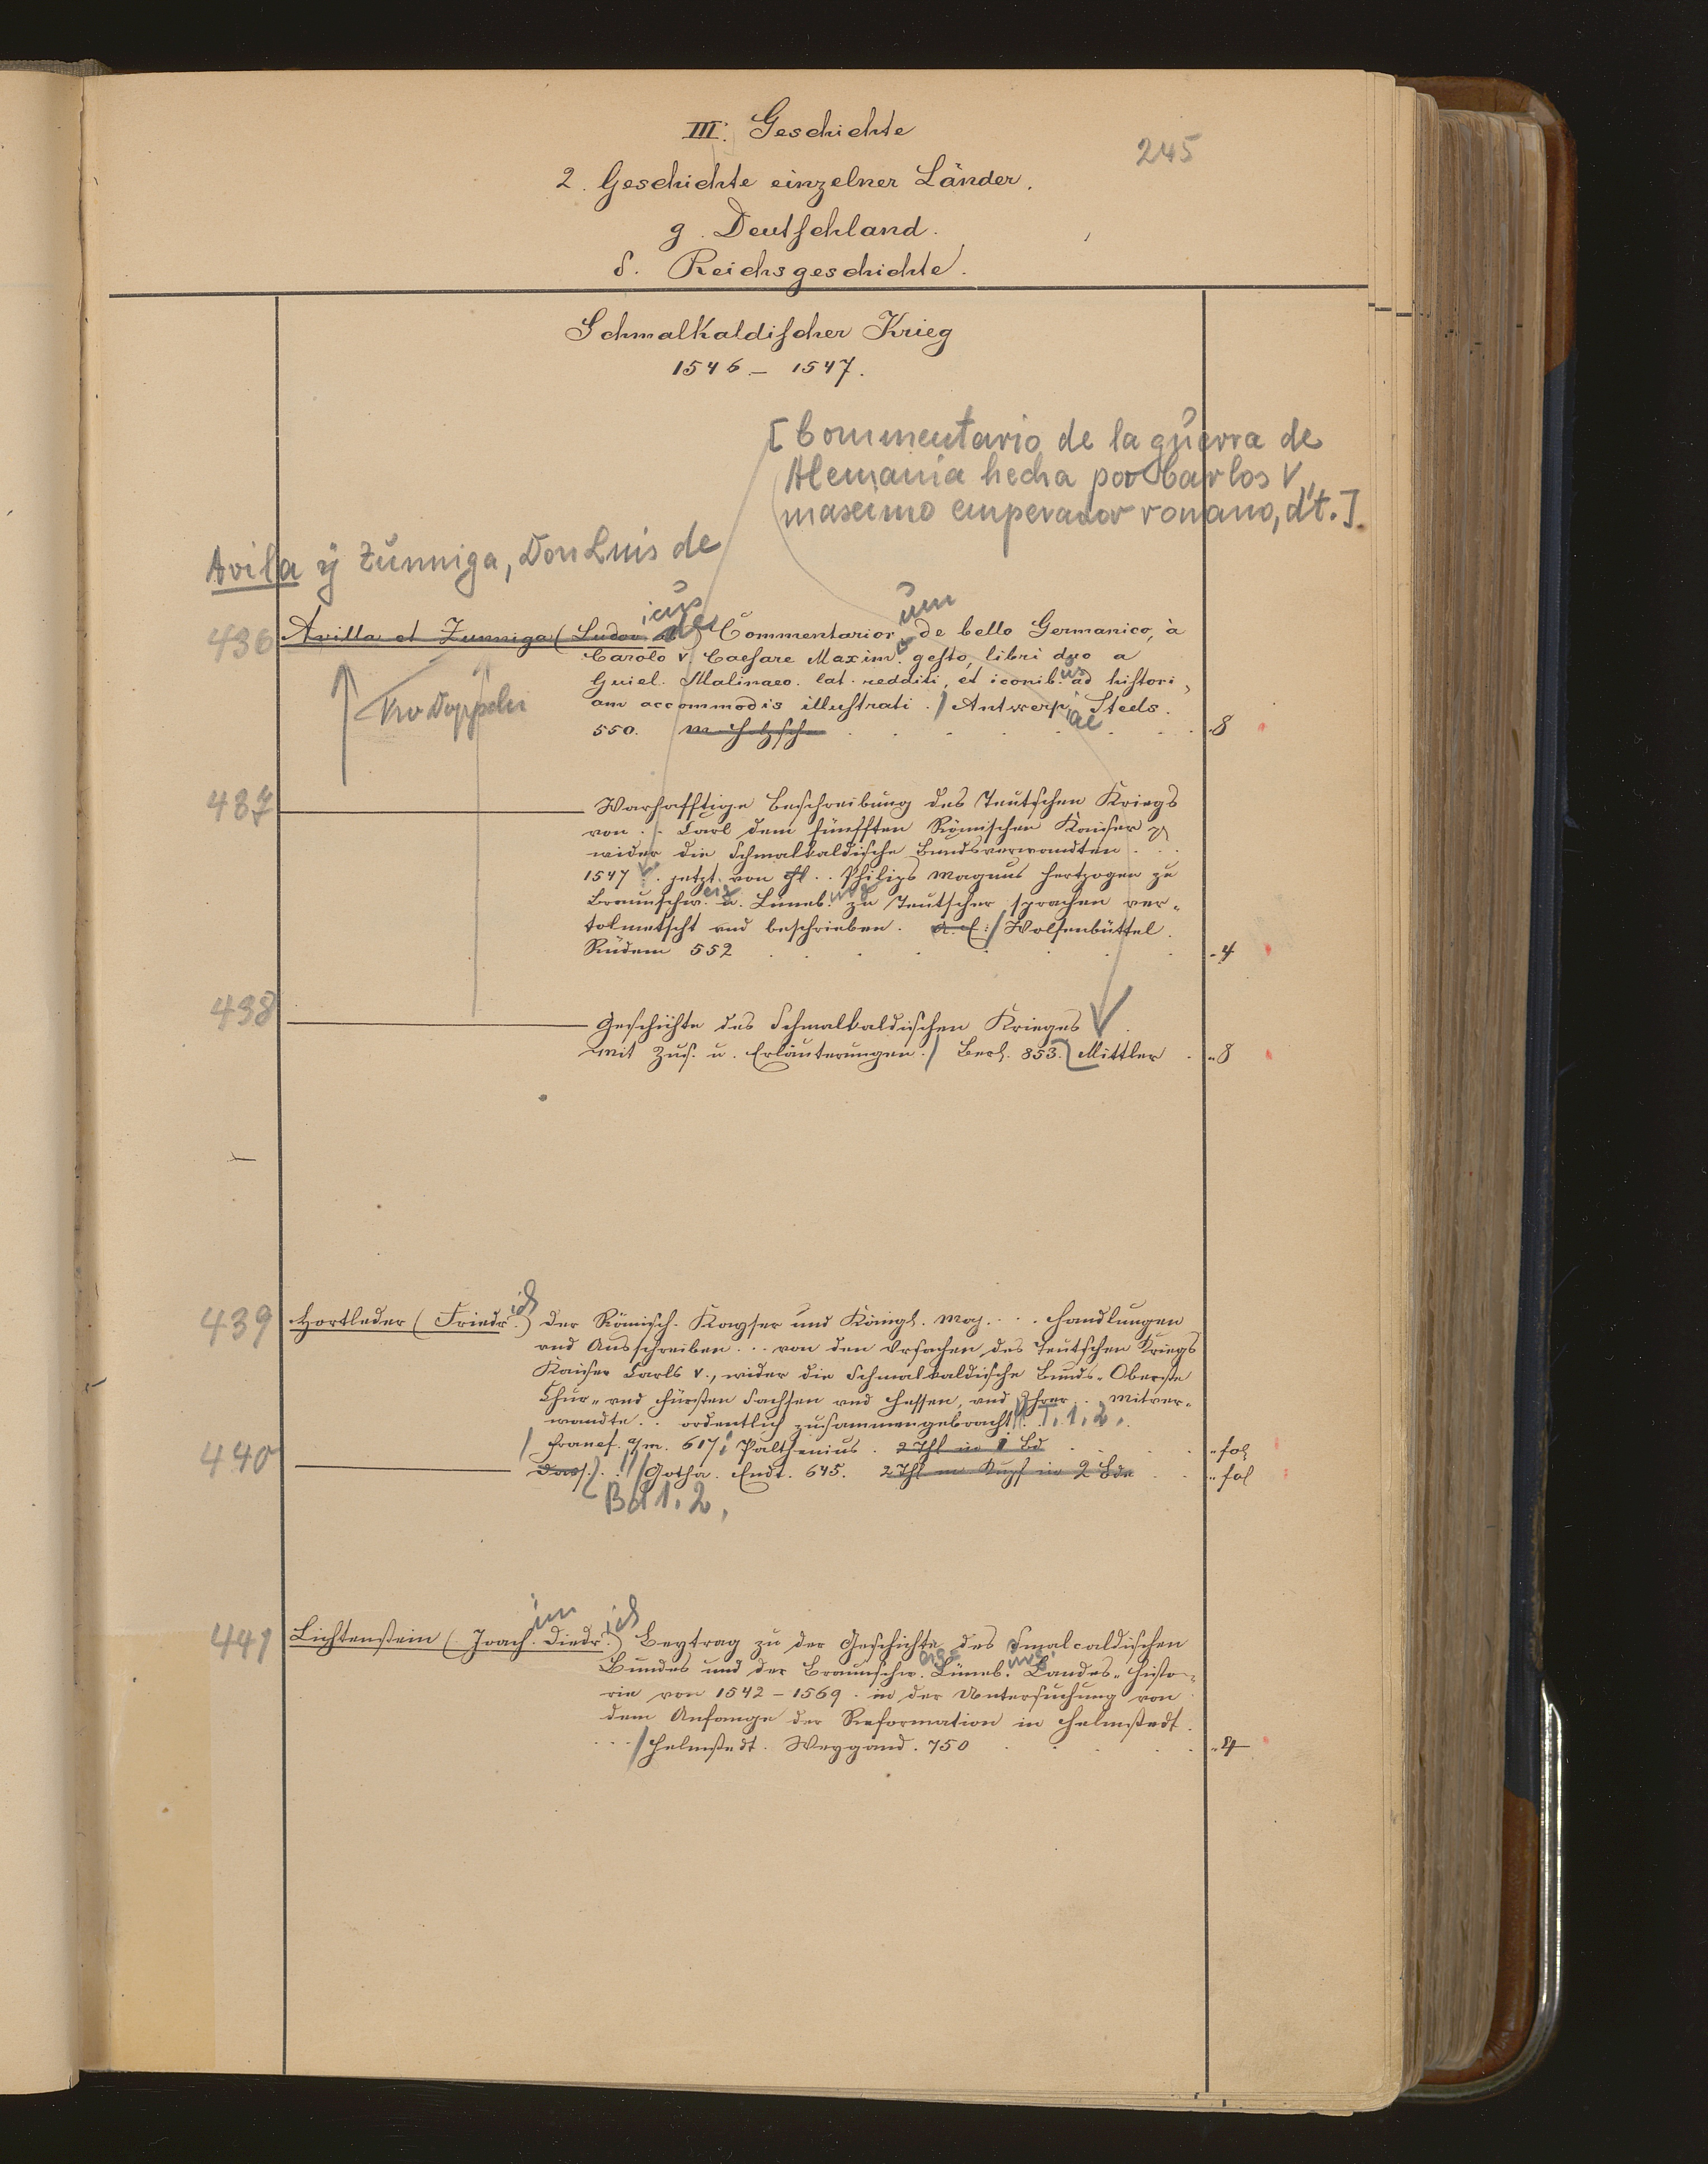 III. Geschichte
245
2. Geschichte einzelner Länder.
g. Deutschland.
δ. Reichsgeschichte.
Schmalkaldischer Krieg
1546 – 1547.
[Commentario de la guerra de
Alemania hecha por Carlos V,
maseimo emperador romano, dt.]
Avila y Zunniga, Don Luis de
icus um
436 Avilla et Zunniga (Ludov. de) Commentarior. de bello Germanico, à
Carolo V. Caesare Maxim. gesto, libri duo a
Guiel. Malinaeo. lat. redditi, et iconib.us ad histori-
am accommodis illustrati. / Antwerpiae Steels.
550. m. Holzschn . . . . . . . 8
437 Warhafftige Beschreibung des Teutschen Kriegs
von . . Carl dem fünfften Römischen Kaiser
wider die Schmalkaldische Bundsverwandten . . .
1547 . . jetzt von . . Philips Magnus Hertzogen zu
Braunschw.eig u. Lüneb.urg zu Teutscher sprachen ver-
tolmetscht und beschrieben. a. E: / Wolfenbüttel.
Rüdem 552 . . . . . . . 4
438 Geschichte des Schmalkaldischen Krieges
Mit Zus. u. Erläuterungen. / Berl. 853. Mittler . 8
439 Hortleder (Friedr.ich) Der Römisch. Kayser und Königl. Maj. . . . Handlungen
und Ausschreiben . . . von den Ursachen des Teutschen Kriegs
Kaiser Carls V., wider die Schmalkaldische Bunds-Oberste
Chur- und Fürsten Sachsen und Hessen, und Ihrer . . Mitver-
wandte . . ordentlich zusammengebracht T. 1. 2.
/ Francf. a/m. 617; Palthenius. 2 Thl in 1 Bd . . . fol
440 Dass. . // Gotha. Endt. 645. 2 Thl m Kupf in 2 Bdn . . fol
Bd 1. 2,
im ich
441 Lichtenstein (Joach. Diedr.) Beytrag zu der Geschichte des Smalcaldischen
Bundes und der Braunschw.eig Lüneb.urg. Landes-Histo-
rie von 1542 – 1569. in der Untersuchung von
dem Anfange der Reformation in Helmstedt.
. . . / Helmstedt. Weygand. 750 . . . . 4